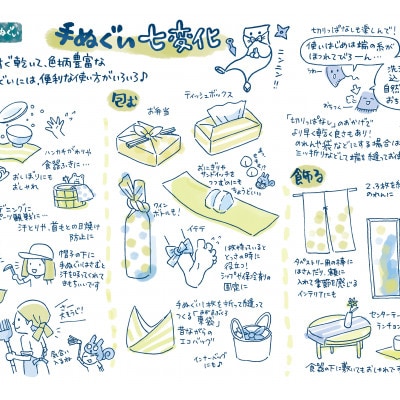 手ぬぐい七変化
ぐ乾いて、色柄豊富な
ぐいには、便利な使い方がいろいろ♪
ハンカチがわりや
食器ふきに…
おしぼりにも
おしゃれ
ーデニングに
ポーツ観戦に…
汗とりや、首もとの日焼け
防止に
帽子の下に
手ぬぐいはさむと
汗を吸ってくれて
きもちいいです
包む
お弁当
ティッシュボックス
おにぎりや
サンドイッチを
つつむのにも
ちょうどいい
ワイン
ボトルも!
イテテ
1枚持っていると
とっさの時に
役立つ!
シップや保冷剤の
固定に
手ぬぐい1枚を折って縫って
つくる「あずま袋」
昔ながらの
エコバッグ
インナーバッグ
にも♪
切りっぱなしも楽しんで!
使いはじめは端の糸が
ほつれてぴろーん…
洗
込
自然
おち
「切りっぱなし」のおかげで
より早く乾く良さもあり!
のれんや袋などにする場合は
三ッ折りなどして端を縫ってお
飾る
2、3枚を
のれんに
タペストリー用の棒に
はさんだり、額に
入れて季節を感じる
インテリアにも
センターテー
ランチョン
食器の下に敷いてもおしゃれです